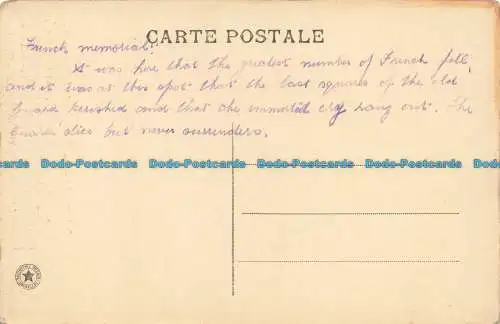 CARTE POSTALE
French memorial.
It was here that the greatest number of French fell,
and it was at this spot that the last squares of the old
Guard perished and that the immortal cry rang out. The
Guard dies but never surrenders.
Dodo-Postcards Dodo-Postcards Dodo-Postcards Dodo-Postcards Dodo-Postcards